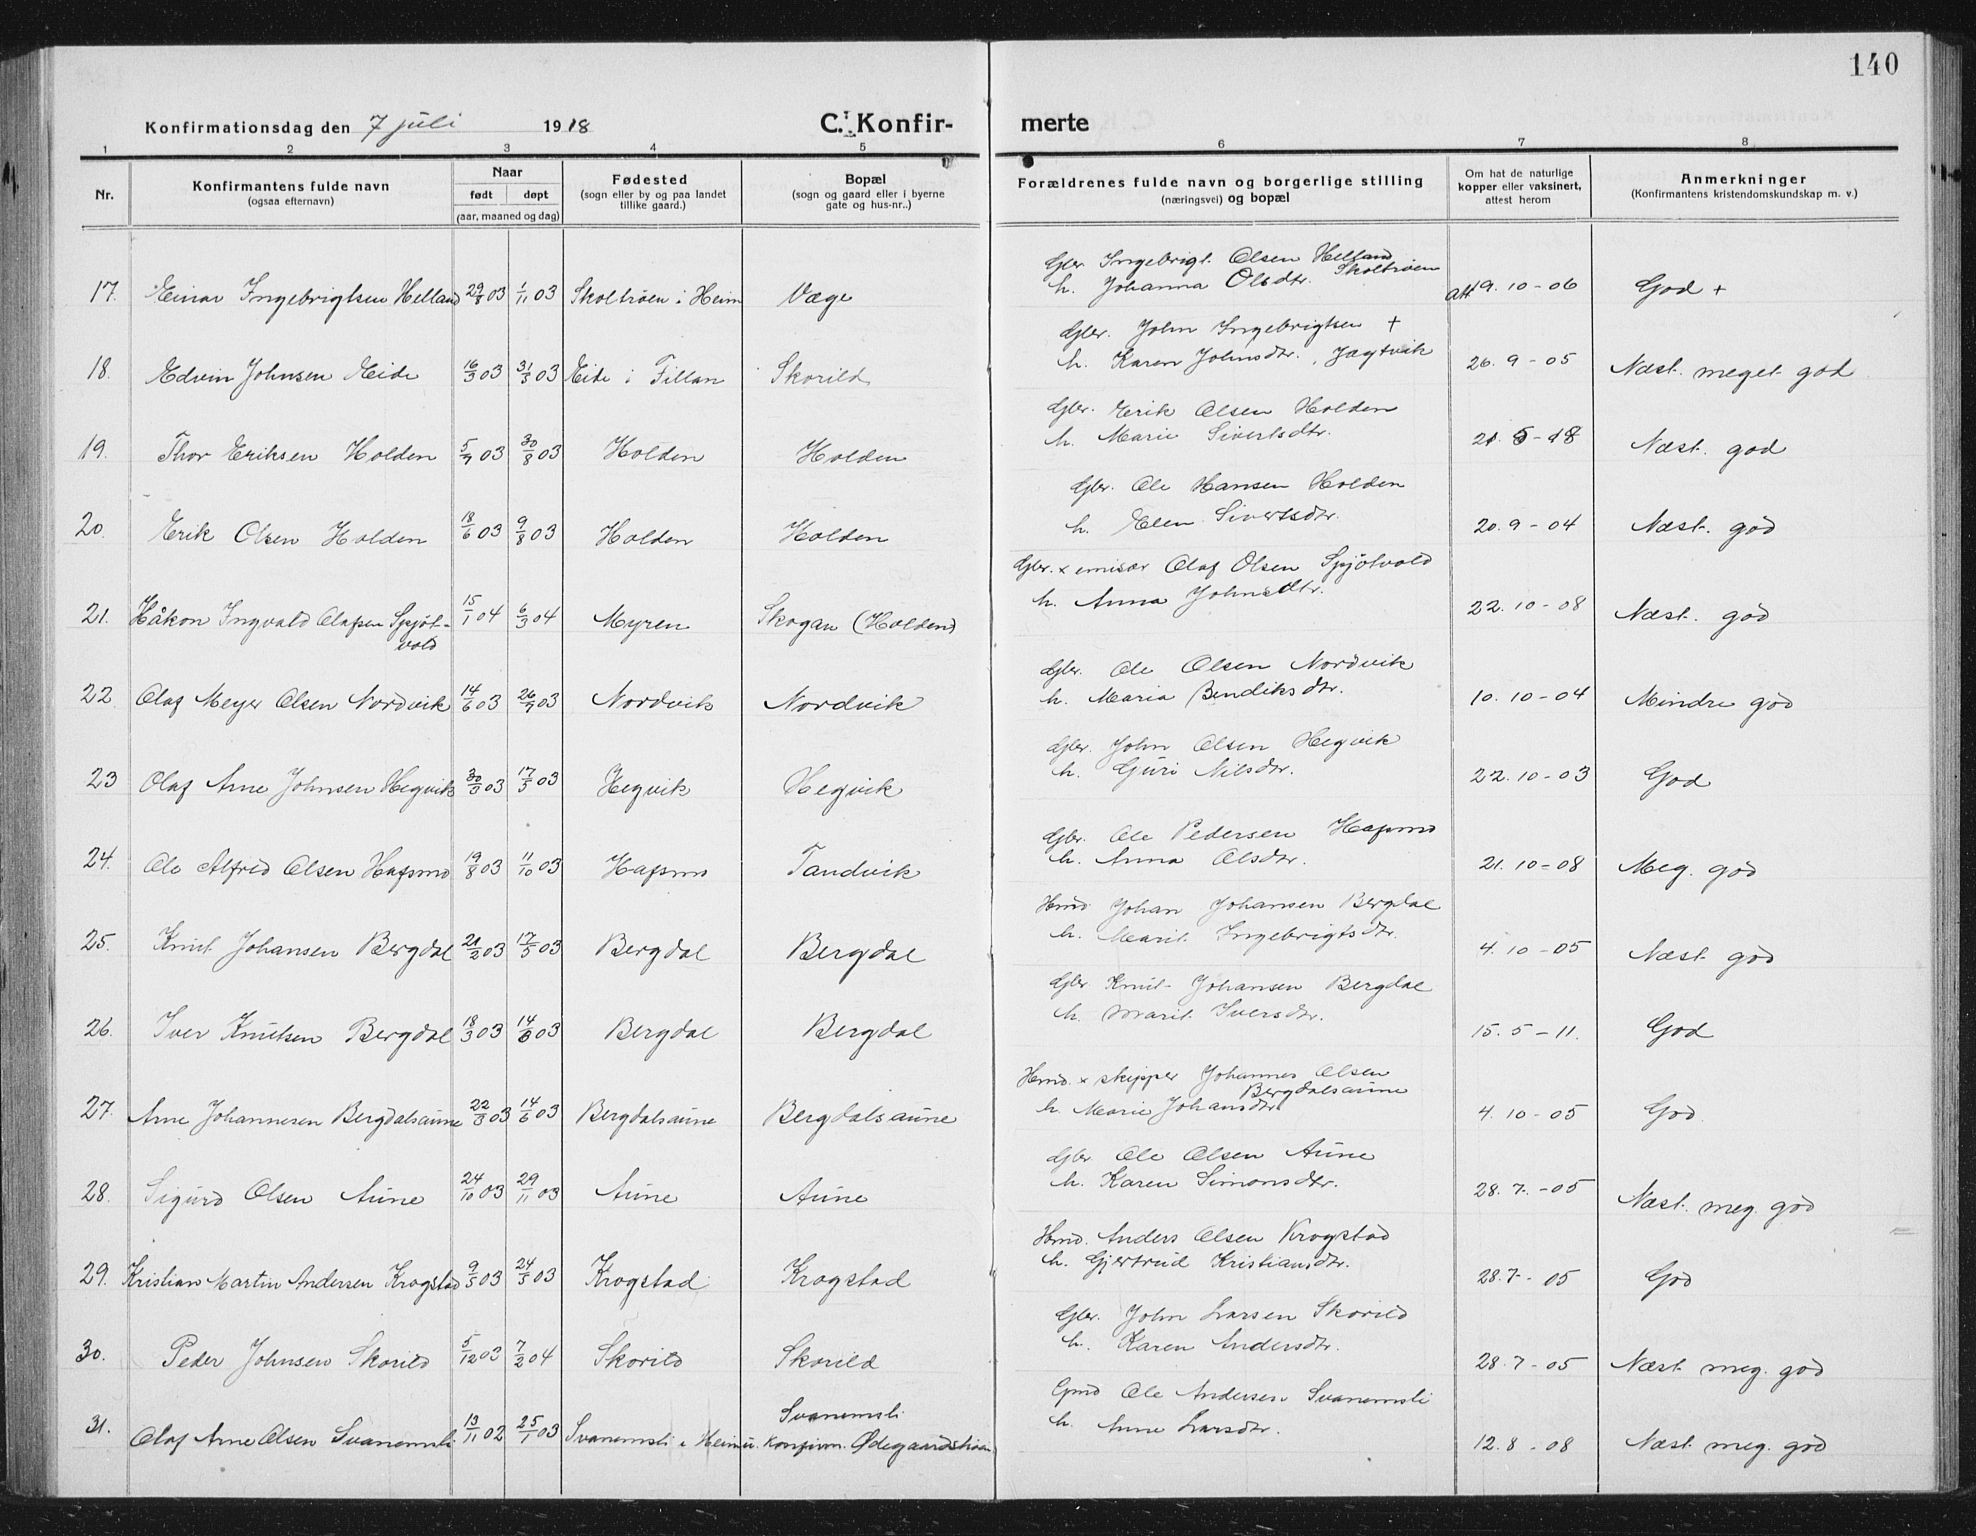 140
Konfirmationsdag den 7 juli 1918 C. Konfir- merte
1 2 3 4 5 6 7 8
Nr. Konfirmantens fulde navn (ogsaa efternavn) Naar født døpt (aar, maaned og dag) Fødested (sogn eller by og paa landet tillike gaard.) Bopæl (sogn og gaard eller i byerne gate og hus-nr..) Forældrenes fulde navn og borgerlige stilling (næringsvei) og bopæl Om hat de naturlige kopper eller vaksinert, attest herom Anmerkninger (Konfirmantens kristendomskundskap m. v.)
Gbr. Ingebrigt Olsen Helland Skoltrøen
17. Einar Ingebrigtsen Helland 29/8 03 1/11 03 Skoltrøen i Heim Væge h. Johanna Olsdtr. att 19. 10 - 06 God +
Gbr. John Ingebrigtsen +
18. Edvin Johnsen Eide 16/3 03 31/5 03 Eide i Fillan Skorild h. Karen Johnsdtr., Jagtvik 26. 9 - 05 Næst. meget god
Gbr. Erik Olsen Holden
19. Thor Eriksen Holden 5/7 03 30/8 03 Holden Holden h. Marie Sivertsdtr. 21. 5 - 18 Næst. god
Gbr. Ole Hansen Holden
20. Erik Olsen Holden 18/6 03 9/8 03 Holden Holden h. Elen Sivertsdtr. 20. 9 - 04 Næst. god
Gbr. x emisær Olaf Olsen Spjøtvold
21. Håkon Ingvald Olafsen Spjøt- 15/1 04 6/3 04 Myren Skogan (Holden) h. Anna Johnsdtr. 22. 10 - 08 Næst. god
vold
Gbr. Ole Olsen Nordvik
22 Olaf Meyer Olsen Nordvik 14/6 03 26/7 03 Nordvik Nordvik h. Maria Bendiksdtr. 10. 10 - 04 Mindre god
Gbr. John Olsen Hegvik
23 Olaf Arne Johnsen Hegvik 30/3 03 17/5 03 Hegvik Hegvik h. Guri Nilsdtr. 22. 10 - 03 God
Gbr. Ole Pedersen Hafsmo
24. Ole Alfred Olsen Hafsmo 19/8 03 11/10 03 Hafsmo Tandvik h. Anna Olsdtr. 21. 10 - 08 Meg. god
Hmd. Johan Johansen Bergdal
25. Knut Johansen Bergdal 21/2 03 17/5 03 Bergdal Bergdal h. Marit Ingebrigtsdtr. 4. 10 - 05 Næst god
Gbr. Knut Johansen Bergdal
26. Iver Knutsen Bergdal 18/3 03 14/6 03 Bergdal Bergdal h. Marit Iversdtr. 15. 5 - 11. God
Hmd. x skipper Johannes Olsen Bergdalsaune
27. Arne Johannesen Bergdalsaune 22/3 03 14/6 03 Bergdalsaune Bergdalsaune h. Marie Johansdtr 4. 10 - 05 God
Gbr Ole Olsen Aune
28. Sigurd Olsen Aune 24/10 03 29/11 03 Aune Aune h. Karen Simonsdtr. 28. 7. - 05 Næst. meg. god
Hmd. Anders Olsen Krogstad
29. Kristian Martin Andersen Krogstad 9/5 03 24/5 03 Krogstad Krogstad h. Gjertrud Kristiansdtr. 28. 7 - 05 God
Gbr. John Larsen Skorild
30. Peder Johnsen Skorild 5/12 03 7/2 04 Skorild Skorild h. Karen Andersdtr. 28. 7 - 05 Næst meg. god
Svanemsli Gmd Ole Andersen Svanemsli
31. Olaf Arne Olsen Svanemsli 13/11 02 25/1 03 Svanemsli i Heim u. konfirm. Ødegaardstrøen h. Anne Larsdtr. 12. 8 - 08 Næst meg. god